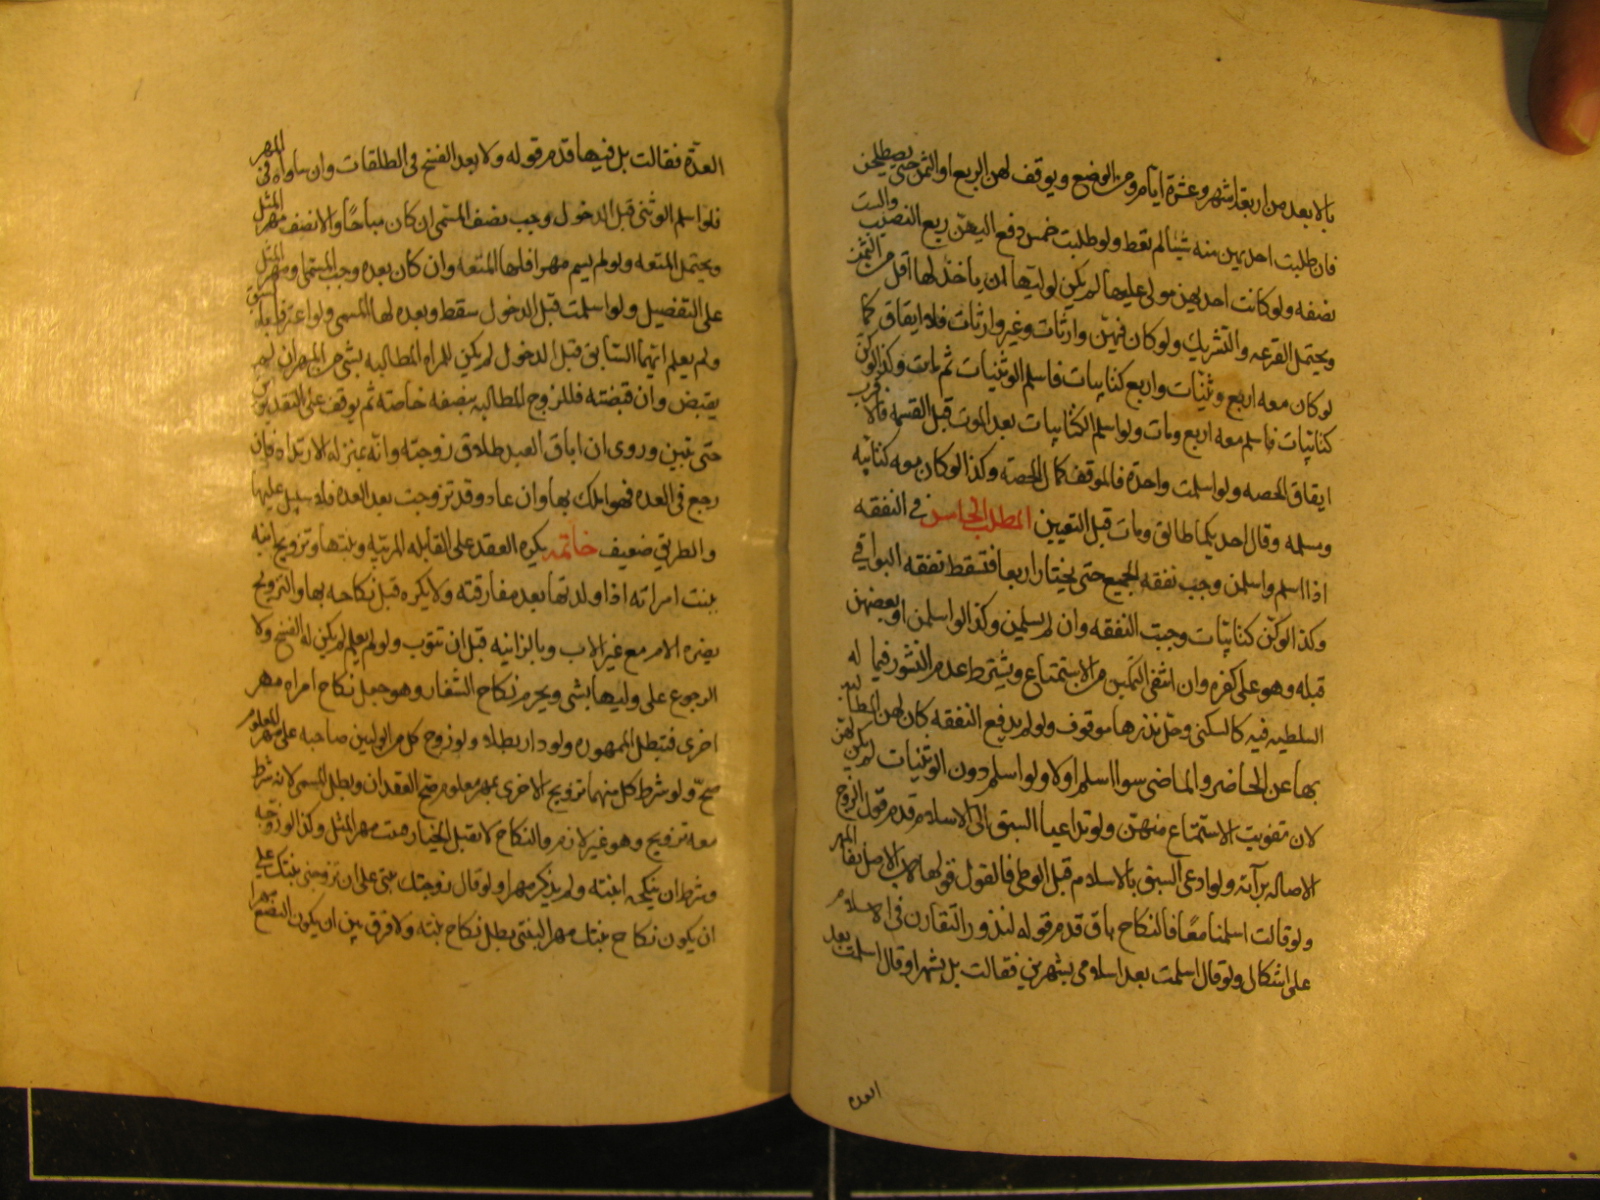 بالابعد من اربعة اشهر وعشرة ايام ومن الوضع ويوقف لهن الربع او الثمن حتى يصطلحن
فان طلبت احديهن منه شيئا لم تعط ولو طلبت خمس دفع اليهن ربع النصيب والست
نصفه ولو كانت احديهن مولى عليها لم يكن لوليها ان ياخذ لها اقل من الثمن
ويحتمل القرعه والتشريك ولو كان فيهن وارثات وغير وارثات فلا ايقاف كما
لو كان معه اربع وثنيات واربع كتابيات فاسلم الوثنيات ثم مات وكذا لو كن
كتابيات فاسلم معه اربع ومات ولو اسلم الكتابيات بعد الموت قبل القسمه فالاقرب
ايقاف الحصه ولو اسلمت واحدة فالموقف كمال الحصه وكذا لو كان معه كتابيه
ومسلمه وقال احديكما طالق ومات قبل التعيين المطلب الخامس في النفقه
اذا اسلم واسلمن وجب نفقه الجميع حتى يختار اربعا فتسقط نفقه البواقي
وكذا لو كن كتابيات وجبت النفقه وان لم يسلمن وكذا لو اسلمن او بعضهن
قبله وهو على كفره وان انتفى التمكين من الاستمتاع ويشترط عدم النشوز فيما له
السلطيه فيه كالسكنى وحل نذرها موقوف ولو لم يدفع النفقه كان لهن المطالبه
بها عن الحاضر والماضي سوا اسلم اولا ولو اسلم دون الوثنيات لم يكن لهن
لان تفويت الاستمتاع منهن ولو تداعيا السبق الى الاسلام قدم قول الزوج
لاصاله براته ولو ادعى السبق بالاسلام قبل الوطي فالقول قولها لان الاصل بقا المهر
ولو قالت اسلمنا معا فالنكاح باق قدم قوله لندور التقارن في الاسلام
على اشكال ولو قال اسلمت بعد اسلامي بشهرين فقالت بل بشهر او قال اسلمت بعد
العده
العدة فقالت بل فيها قدم قوله ولا بعد الفسخ في الطلقات وان ساواه في المهر
فلو اسلم الوثني قبل الدخول وجب نصف المسمى ان كان مباحا والا نصف مهر المثل
ويحتمل المتعه ولو لم يسم مهرا فلها المتعه وان كان بعده وجب المسمى او مهر المثل
على التفصيل ولو اسلمت قبل الدخول سقط وبعده لها المسمى ولو اعترفا
ولم يعلم ايهما السابق قبل الدخول لم يكن للمراه المطالبه بشي من المهر ان لم
يقبض وان قبضته فللزوج المطالبه بنصفه خاصه ثم يوقف على التقديرين
حتى يتبين وروى ان اباق العبد طلاق زوجته وانه بمنزله الارتداد فان
رجع في العده فهو املك بها وان عاد وقد تزوجت بعد العده فلا سبيل عليها
والطريق ضعيف خاتمه يكره العقد على القابله المربيه وبنتها وتزويج ابنه
ببنت امراته اذا ولدتها بعد مفارقته ولا يكره قبل نكاحه بها والتزويج
بضره الام مع غير الاب وبالزانيه قبل ان تتوب ولو لم يعلم لم يكن له الفسخ ولا
الرجوع على وليها بشي ويحرم نكاح الشغار وهو جعل نكاح امراه مهر
اخرى فتبطل الممهوره ولو دار بطلا ولو زوج كل من الوليين صاحبه على مهر معلوم
صح ولو شرط كل منهما تزويج الاخرى بمهر معلوم صح العقدان وبطل المسمى لانه شرط
معه تزويج وهو غير لازم والنكاح لا يقبل الخيار فيثبت مهر المثل وكذا لو زوجه
وشرط ان ينكحه ابنته ولم يذكر مهرا ولو قال زوجتك بنتي على ان تزوجني بنتك على
ان يكون نكاح بنتك مهرا لبنتي بطل نكاح بنته ولا فرق بين ان يكون البضع مهرا